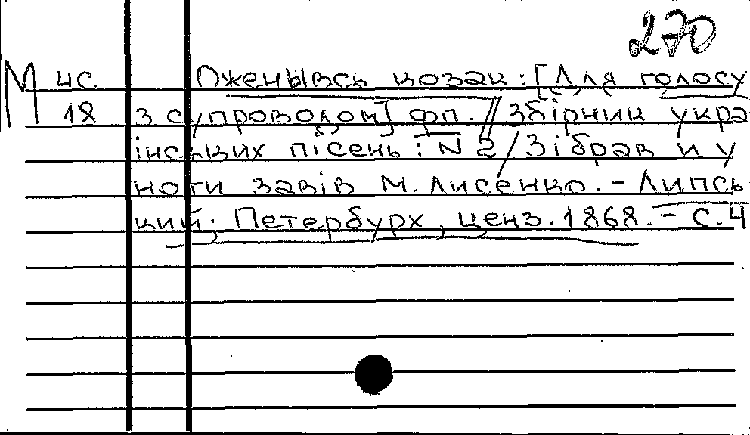 270
М чс. Оженывсь козак : [Для голосу
18 з супроводом] фп. // Збірник укра
їнських пісень : N 2 / Зібрав и у
ноти завів М. Лисенко. - Липсь
кий; Петербурх, ценз. 1868. - С. 4